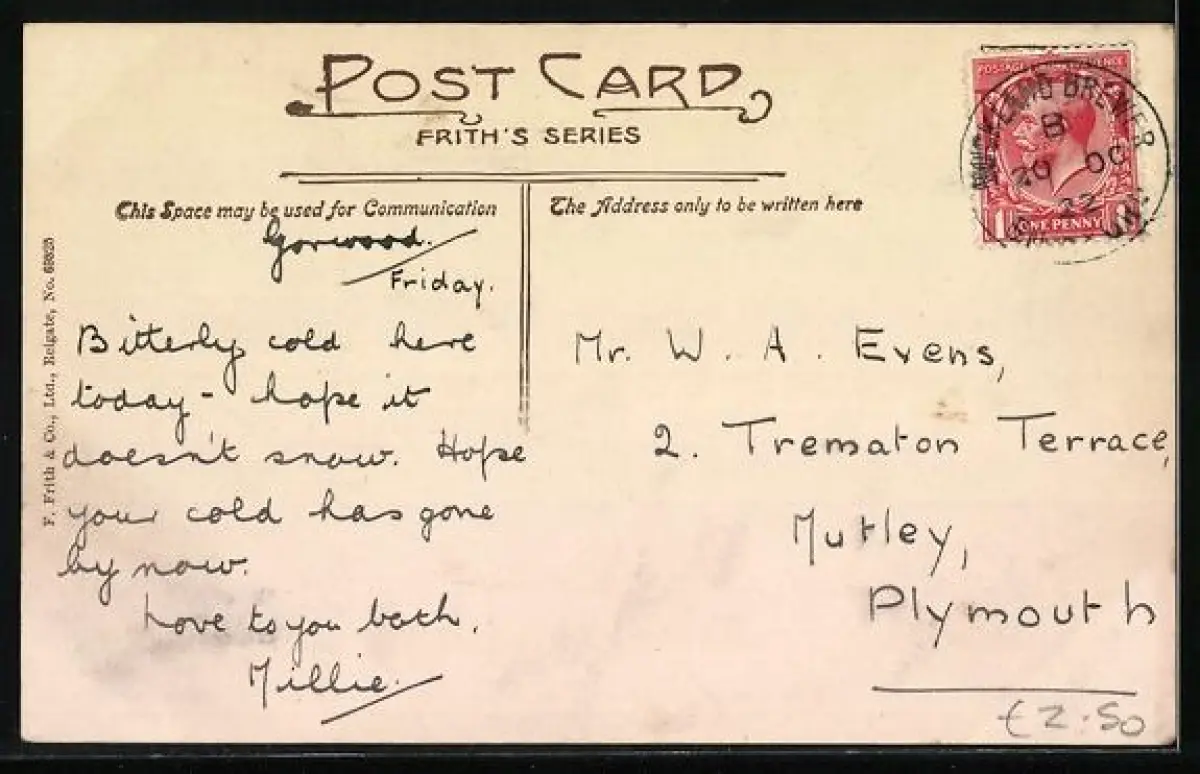 POST CARD
FRITH'S SERIES
This Space may be used for Communication
The Address only to be written here
F. Frith & Co., Ltd., Reigate, No.
Gorwood.
Friday.
Bitterly cold here
today - hope it
doesn't snow. Hope
your cold has gone
by now.
Love to you both.
Millie.
POSTAGE REVENUE
BREWER
B
20 OC
22
1 ONE PENNY
Mr. W. A. Evens,
2. Trematon Terrace,
Mutley,
Plymouth
£2.50